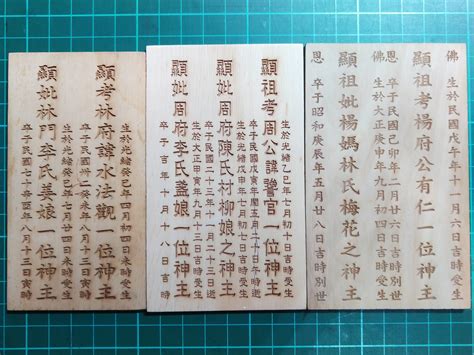 佛 生於民國戊午年十一月六日吉時受生
顯祖考楊府公有仁一位神主
卒于民國卯年二月廿六日吉時別世
佛 生於大正庚申年九月初四日吉時受生
顯祖妣楊媽林氏梅花之神主
恩 卒于昭和庚辰年五月廿八日吉時別世
顯祖考周公諱官一位神主
生於光緒乙巳年七月初十日吉時受生
卒于民國年閏五月三十日午時逝
顯妣周府陳氏村柳娘之神主
生於光緒戊申年七月初八日吉時受生
卒于民國二十年二月初三日吉時逝
顯妣周府李氏蓋娘一位神主
生於大正甲寅年九月十三日吉時受生
卒于吉年十月十八日吉時
生於光緒癸巳年四月初四日未時受生
顯考林府諱水法觀一位神主
卒于民國癸未年八月初三日時
生於光緒癸巳年八月十三日時受生
顯妣林門李氏姜娘一位神主
卒于民國七十年八月十三日寅時